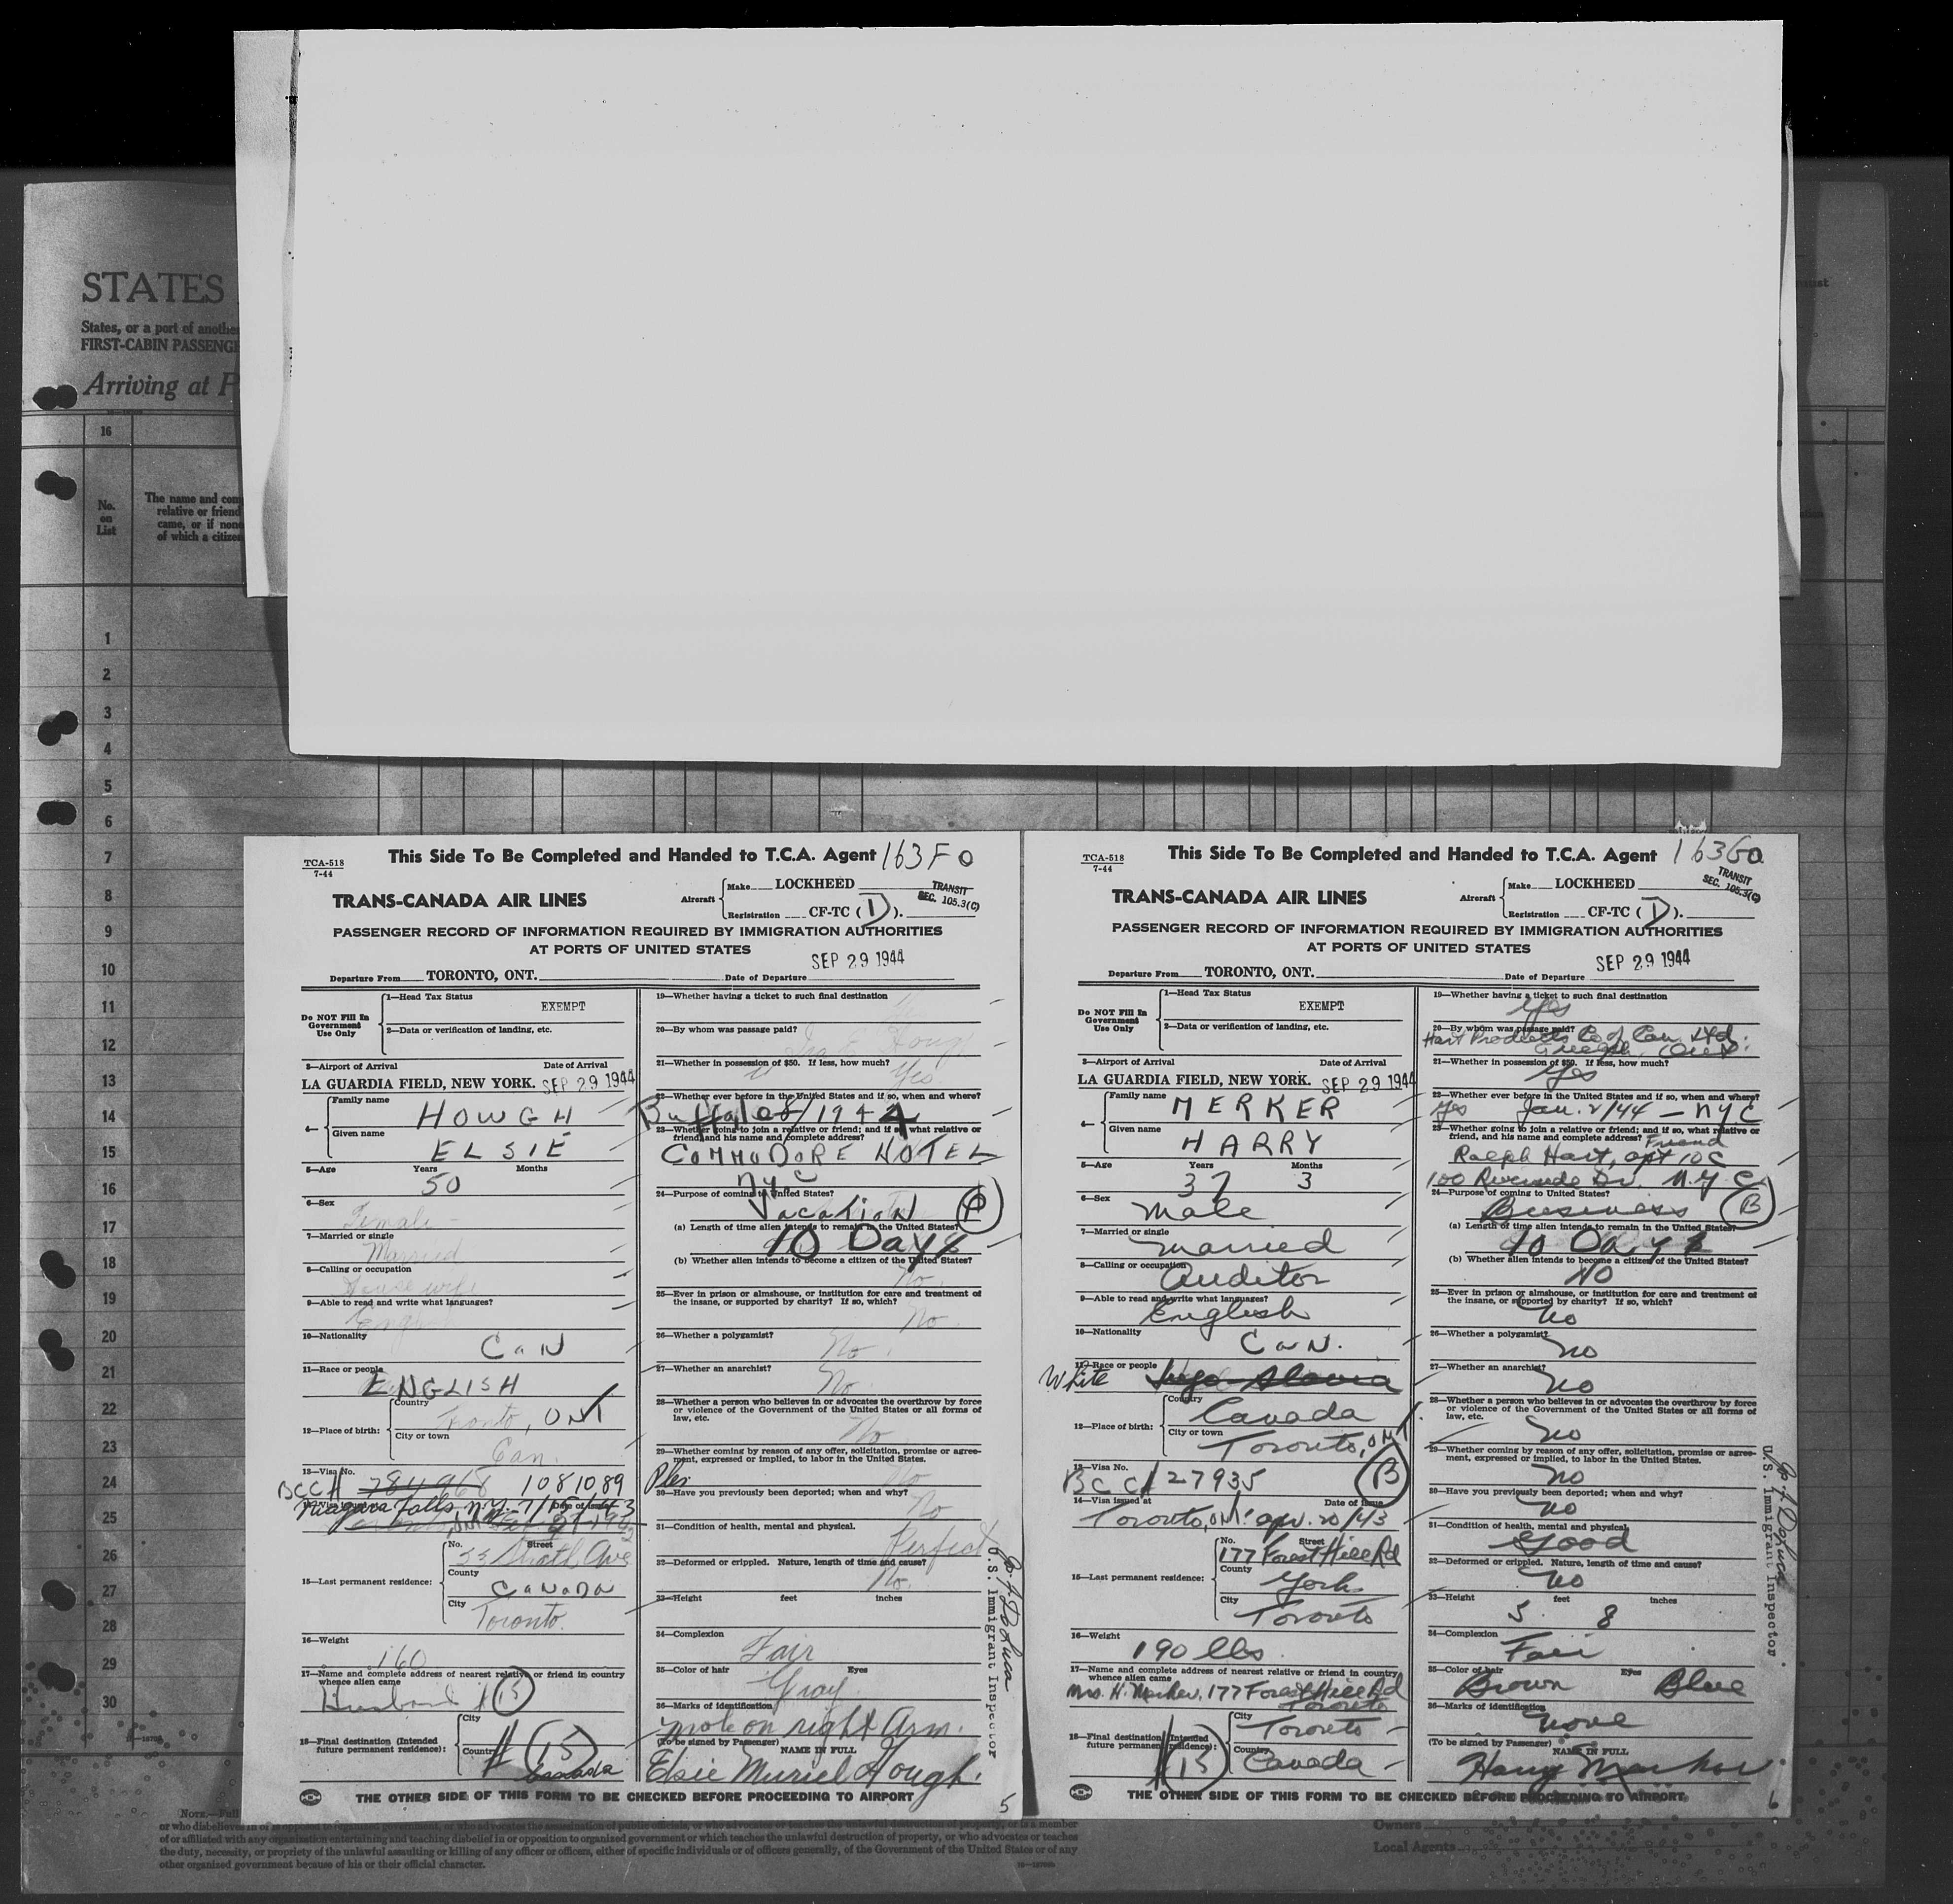 STATES
States, or a port of another
FIRST-CABIN PASSENGE
Arriving at P
16
No.
on
List
The name and com
relative or friend
came, or if none
of which a citizen
1
2
3
4
5
6
7
8
9
10
11
12
13
14
15
16
17
18
19
20
21
22
23
24
25
26
27
28
29
30
TCA-518
7-44
This Side To Be Completed and Handed to T.C.A. Agent 163 F 0
TRANS-CANADA AIR LINES
Aircraft
Make LOCKHEED
Registration CF-TC ( D ).
TRANSIT
SEC. 105.3(C)
PASSENGER RECORD OF INFORMATION REQUIRED BY IMMIGRATION AUTHORITIES
AT PORTS OF UNITED STATES
SEP 29 1944
Departure From TORONTO, ONT. Date of Departure
Do NOT Fill In
Government
Use Only
1—Head Tax Status
EXEMPT
2—Data or verification of landing, etc.
3—Airport of Arrival Date of Arrival
LA GUARDIA FIELD, NEW YORK. SEP 29 1944
4—
Family name
HOWGH
Given name
ELSIE
5—Age Years Months
50
6—Sex
Female
7—Married or single
Married
8—Calling or occupation
Housewife
9—Able to read and write what languages?
10—Nationality
CAN
11—Race or people
ENGLISH
12—Place of birth:
Country
Toronto, ONT
City or town
Can.
13—Visa No.
BCC# 784968 1081089
Niagara Falls, N.Y. 7/15/43
15—Last permanent residence:
No. Street
Ave
County
CANADA
City
Toronto.
16—Weight
160
17—Name and complete address of nearest relative or friend in country
whence alien came
Husband #15
18—Final destination (Intended
future permanent residence):
City
Country
# 15
Canada
19—Whether having a ticket to such final destination
20—By whom was passage paid?
21—Whether in possession of $50. If less, how much?
Yes.
22—Whether ever before in the United States and if so, when and where?
23—Whether going to join a relative or friend; and if so, what relative or
friend, and his name and complete address?
COMMODORE HOTEL
NYC
24—Purpose of coming to United States?
Vacation P
(a) Length of time alien intends to remain in the United States?
10 Days
(b) Whether alien intends to become a citizen of the United States?
No.
25—Ever in prison or almshouse, or institution for care and treatment of
the insane, or supported by charity? If so, which?
No.
26—Whether a polygamist?
No.
27—Whether an anarchist?
No.
28—Whether a person who believes in or advocates the overthrow by force
or violence of the Government of the United States or all forms of
law, etc.
No
29—Whether coming by reason of any offer, solicitation, promise or agree-
ment, expressed or implied, to labor in the United States.
No
30—Have you previously been deported; when and why?
No
31—Condition of health, mental and physical.
Perfect
32—Deformed or crippled. Nature, length of time and cause?
No.
33—Height feet inches
34—Complexion
Fair
35—Color of hair Eyes
Gray
36—Marks of identification
mole on right Arm.
(To be signed by Passenger)
NAME IN FULL
Elsie Muriel Hough.
U.S. Immigrant Inspector
THE OTHER SIDE OF THIS FORM TO BE CHECKED BEFORE PROCEEDING TO AIRPORT
5
TCA-518
7-44
This Side To Be Completed and Handed to T.C.A. Agent 163 G0
TRANS-CANADA AIR LINES
Aircraft
Make LOCKHEED
Registration CF-TC ( D ).
TRANSIT
SEC. 105.3(C)
PASSENGER RECORD OF INFORMATION REQUIRED BY IMMIGRATION AUTHORITIES
AT PORTS OF UNITED STATES
SEP 29 1944
Departure From TORONTO, ONT. Date of Departure
Do NOT Fill In
Government
Use Only
1—Head Tax Status
EXEMPT
2—Data or verification of landing, etc.
3—Airport of Arrival Date of Arrival
LA GUARDIA FIELD, NEW YORK. SEP 29 1944
4—
Family name
MERKER
Given name
HARRY
5—Age Years Months
37 3
6—Sex
Male
7—Married or single
Married
8—Calling or occupation
Auditor
9—Able to read and write what languages?
English
10—Nationality
CAN.
11—Race or people
White Jugo-Slavia
12—Place of birth:
Country
Canada
City or town
Toronto, ONT.
13—Visa No.
BCC# 27935 B
14—Visa issued at Date of issue
Toronto, ONT. Apr. 20/43
15—Last permanent residence:
No. Street
177 Forest Hill Rd
County
York
City
Toronto
16—Weight
190 lbs.
17—Name and complete address of nearest relative or friend in country
whence alien came
Mrs. H. Merker, 177 Forest Hill Rd
Toronto
18—Final destination (Intended
future permanent residence):
City
Toronto
Country
#15 Canada
19—Whether having a ticket to such final destination
Yes
20—By whom was passage paid?
Hart Products Co of Can. Ltd.
Guelph, Ont.
21—Whether in possession of $50. If less, how much?
Yes
22—Whether ever before in the United States and if so, when and where?
Yes Jan. 2/44 — NYC
23—Whether going to join a relative or friend; and if so, what relative or
friend, and his name and complete address? Friend
Ralph Hart, apt 10C
100 Riverside Dr. N.Y.C.
24—Purpose of coming to United States?
Business B
(a) Length of time alien intends to remain in the United States?
10 Days
(b) Whether alien intends to become a citizen of the United States?
NO
25—Ever in prison or almshouse, or institution for care and treatment of
the insane, or supported by charity? If so, which?
No
26—Whether a polygamist?
No
27—Whether an anarchist?
No
28—Whether a person who believes in or advocates the overthrow by force
or violence of the Government of the United States or all forms of
law, etc.
No
29—Whether coming by reason of any offer, solicitation, promise or agree-
ment, expressed or implied, to labor in the United States.
No
30—Have you previously been deported; when and why?
No
31—Condition of health, mental and physical.
Good
32—Deformed or crippled. Nature, length of time and cause?
No
33—Height feet inches
5 8
34—Complexion
Fair
35—Color of hair Eyes
Brown Blue
36—Marks of identification
None
(To be signed by Passenger)
NAME IN FULL
Harry Merker
U.S. Immigrant Inspector
THE OTHER SIDE OF THIS FORM TO BE CHECKED BEFORE PROCEEDING TO AIRPORT
6
NOTE.—Full
or who disbelieves in or is opposed to organized government, or who advocates the assassination of public officials, or who advocates or teaches the unlawful destruction of property, or is a member
of or affiliated with any organization entertaining and teaching disbelief in or opposition to organized government or which teaches the unlawful destruction of property, or who advocates or teaches
the duty, necessity, or propriety of the unlawful assaulting or killing of any officer or officers, either of specific individuals or of officers generally, of the Government of the United States or of any
other organised government because of his or their official character.
Owners
Local Agents